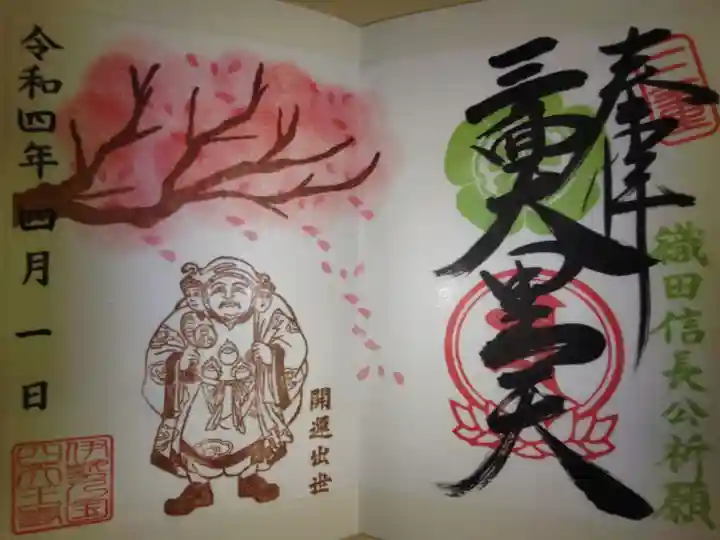 三重
奉拝
織田信長公祈願
三面大黒天
開運出世
令和四年四月一日
四天王寺